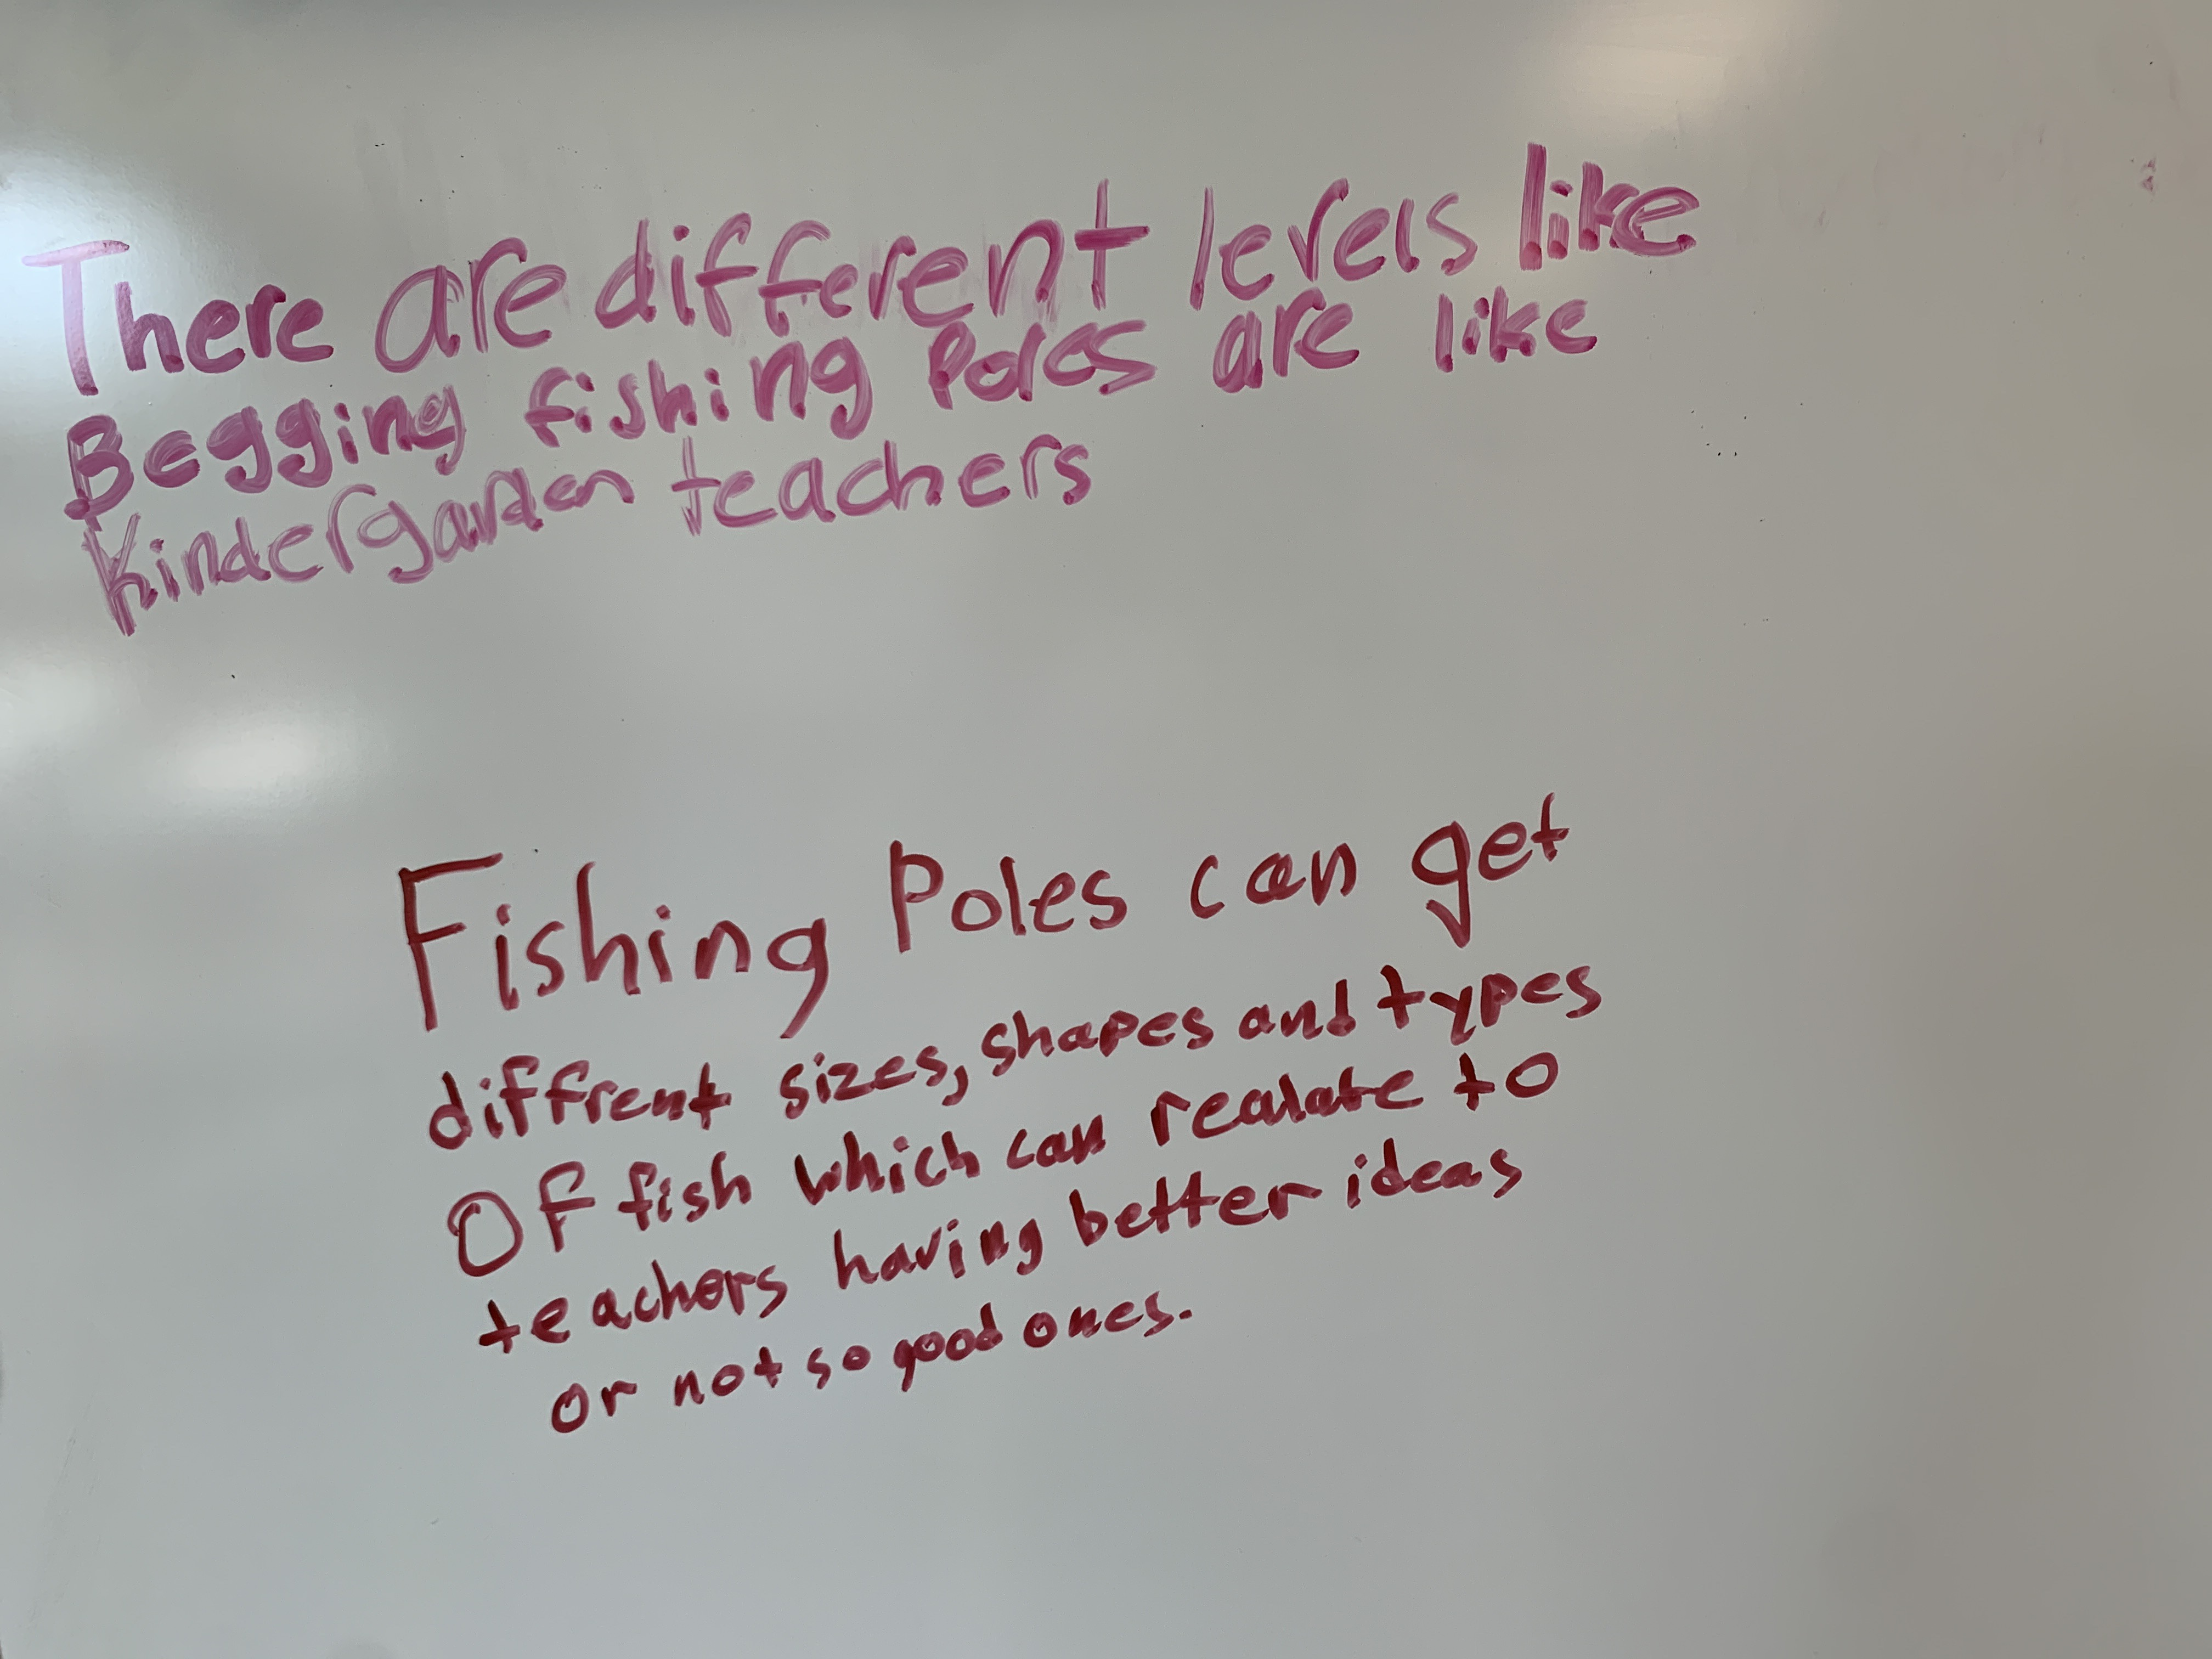 There are different levels like
Begging fishing Poles are like
Kindergarden teachers
Fishing Poles can get
diffrent sizes, shapes and types
OF fish which can realate to
teachers having better ideas
or not so good ones.